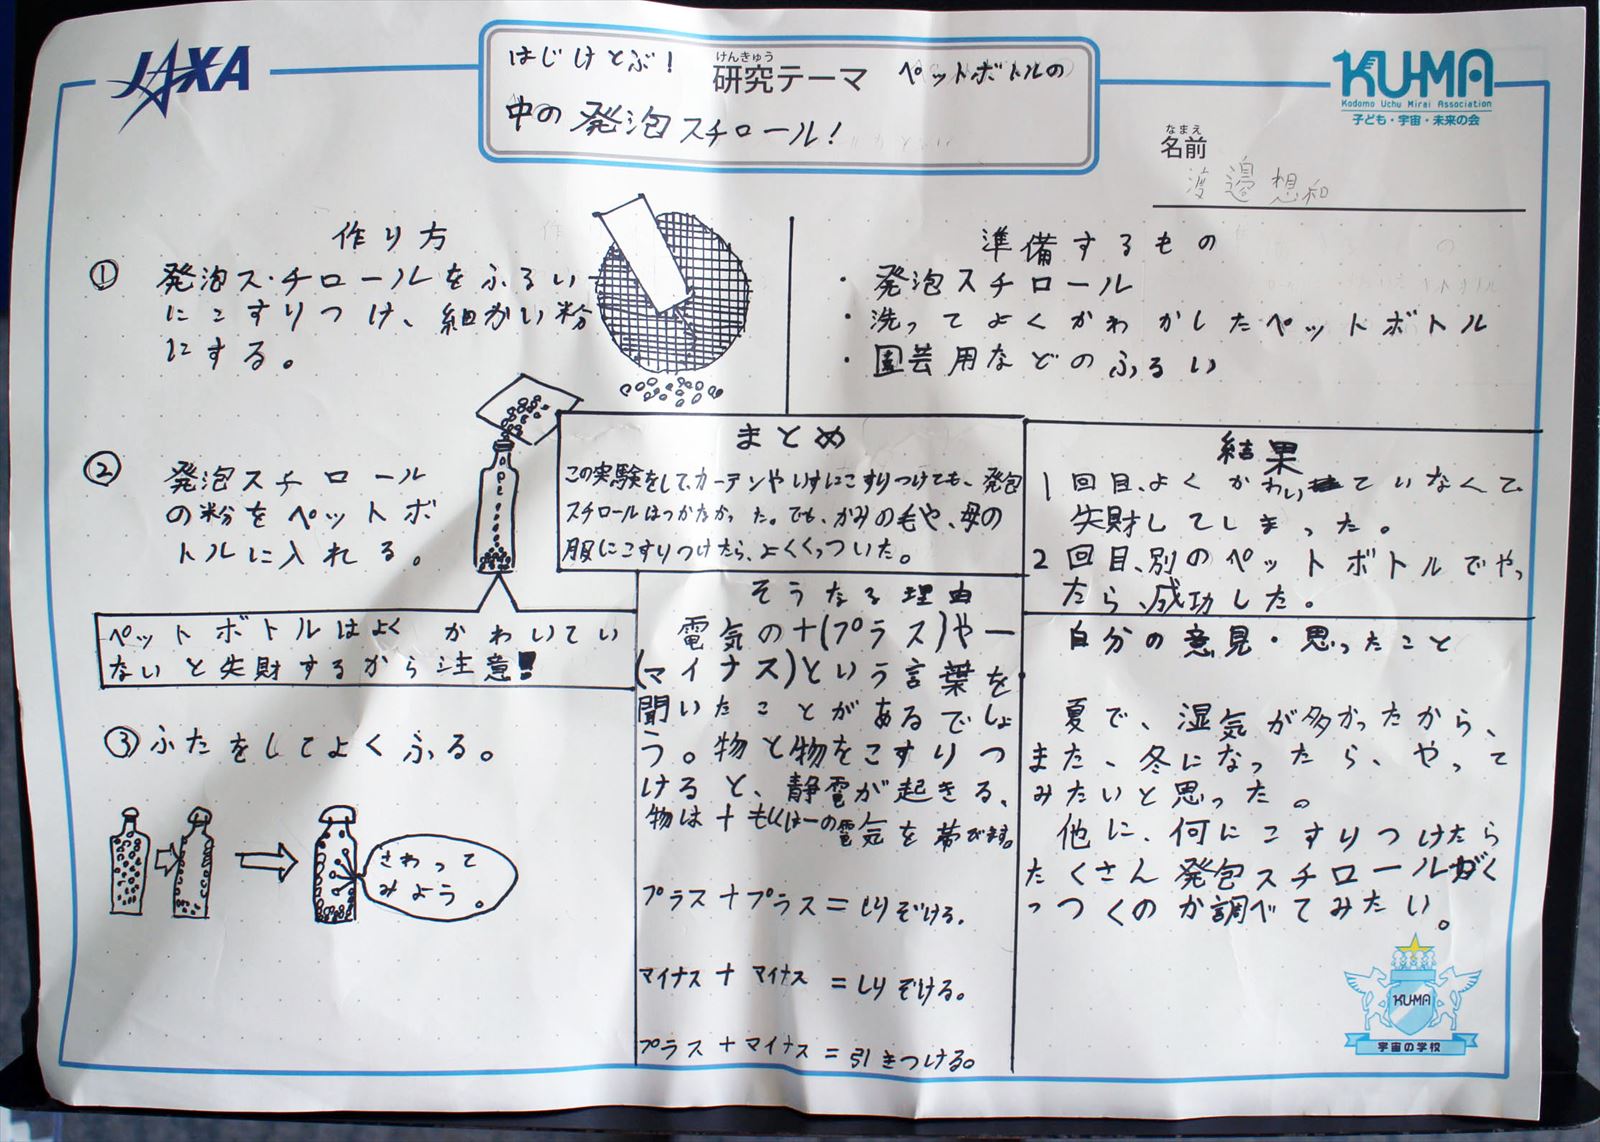 JAXA
はじけとぶ！
けんきゅう
研究テーマ
ペットボトルの
中の発泡スチロール！
KU-MA
Kodomo Uchu Mirai Association
子ども・宇宙・未来の会
なまえ
名前
渡邉想和
作り方
① 発泡ス・チロールをふるい
にこすりつけ、細かい粉
にする。
② 発泡スチロール
の粉をペットボ
トルに入れる。
ペットボトルはよくかわいてい
ないと失財するから注意!!
③ふたをしてよくふる。
さわって
みよう。
準備するもの
・発泡スチロール
・洗ってよくかわかしたペットボトル
・園芸用などのふるい
まとめ
この実験をして、カーテンやいすにこすりつけても、発包
スチロールはつかなかった。でも、かみの毛や、母の
服にこすりつけたら、よくくっついた。
結果
1回目、よくかわいていなくて、
失財してしまった。
2回目、別のペットボトルでやっ
たら、成功した。
そうなる理由
電気の＋(プラス)や－
(マイナス)という言葉を
聞いたことがあるでしょ
う。物と物をこすりつ
けると、静電が起きる、
物は＋もしくは－の電気を帯びます。
プラス＋プラス＝しりぞける。
マイナス＋マイナス＝しりぞける。
プラス＋マイナス＝引きつける。
自分の意見・思ったこと
夏で、湿気が多かったから、
また、冬になったら、やって
みたいと思った。
他に、何にこすりつけたら
たくさん発包スチロールがく
っつくのか調べてみたい。
KU-MA
宇宙の学校